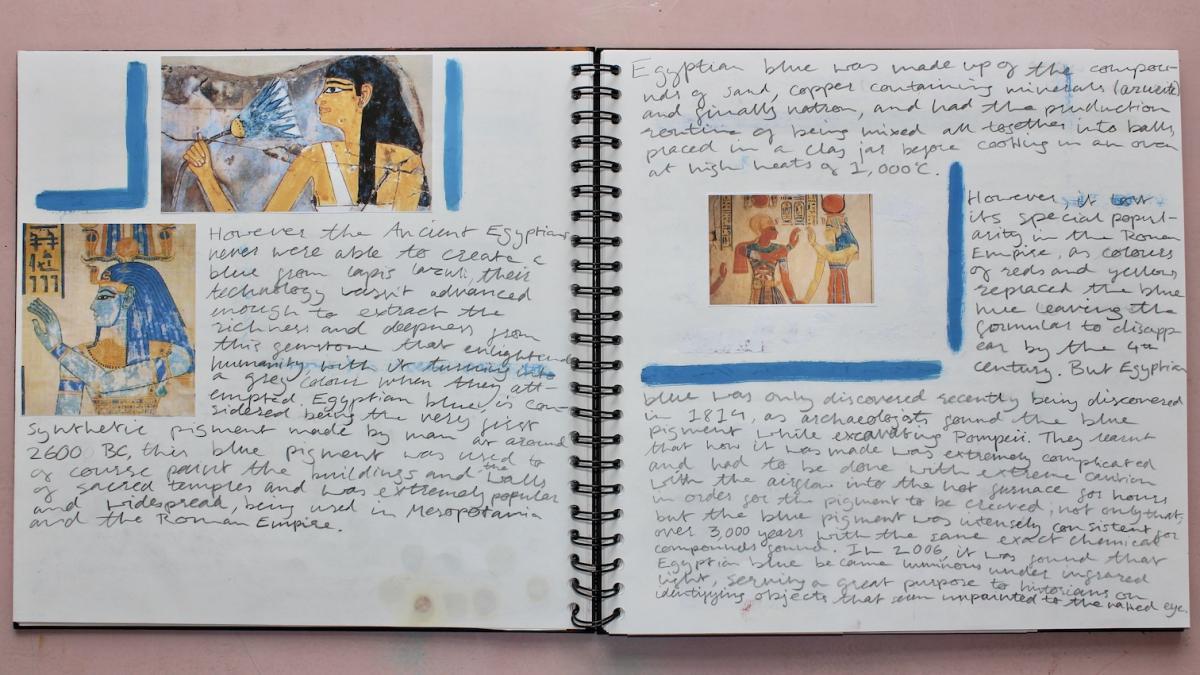 However the Ancient Egyptians
never were able to create a
blue from lapis lazuli, their
technology wasn't advanced
enough to extract the
richness and deepness from
this gemstone that enlightened
humanity with it turning into
a grey colour when they att-
empted. Egyptian blue, is con-
sidered being the very first
synthetic pigment made by man at around
2600 BC, this blue pigment was used to
of course paint the buildings and the walls
of sacred temples and was extremely popular
and widespread, being used in Mesopotamia
and the Roman Empire.
Egyptian blue was made up of the compou-
nds of sand, copper containing minerals (azurite)
and finally natron, and had the production
routine of being mixed all together into balls,
placed in a clay jar before cooking in an oven
at high heats of 1,000°C.
However, it lost
its special popul-
arity in the Roman
Empire, as colours
of reds and yellows
replaced the blue
hue leaving the
formulas to disapp-
ear by the 4th
century. But Egyptian
blue was only discovered recently being discovered
in 1814, as archaeologists found the blue
pigment while excavating Pompeii. They learnt
that how it was made was extremely complicated
and had to be done with extreme caution
with the airflow into the hot furnace for hours
in order for the pigment to be created, not only that,
but the blue pigment was intensely consistent for
over 3,000 years with the same exact chemical
compounds found. In 2006, it was found that
Egyptian blue became luminous under infrared
light, serving a great purpose to historians on
identifying objects that seem unpainted to the naked eye.